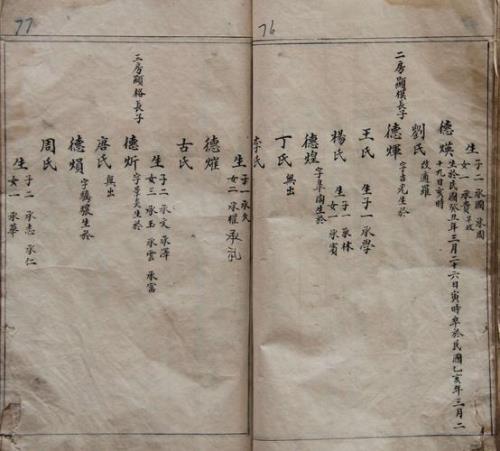 76
生 子二 承國 承周
女一 承貴 早故
德煐 生於民國癸丑年三月二十六日寅時卒於民國乙亥年三月二
十九日亥時
劉氏 改適羅
二房顯模長子
德煇 字吉光生於
王氏 生 子一 承學
楊氏 生 子一 承林
女一 承賓
德煌
丁氏 無出
李氏
77
生 子二 承久
女二 承耀
德燿
古氏
三房顯格長子
生 子二 承文 承澤
女三 承玉 承雲 承富
德炘 字景炎生於
唐氏 無出
德熉
周氏
生 子二 承志 承仁
女一 承華